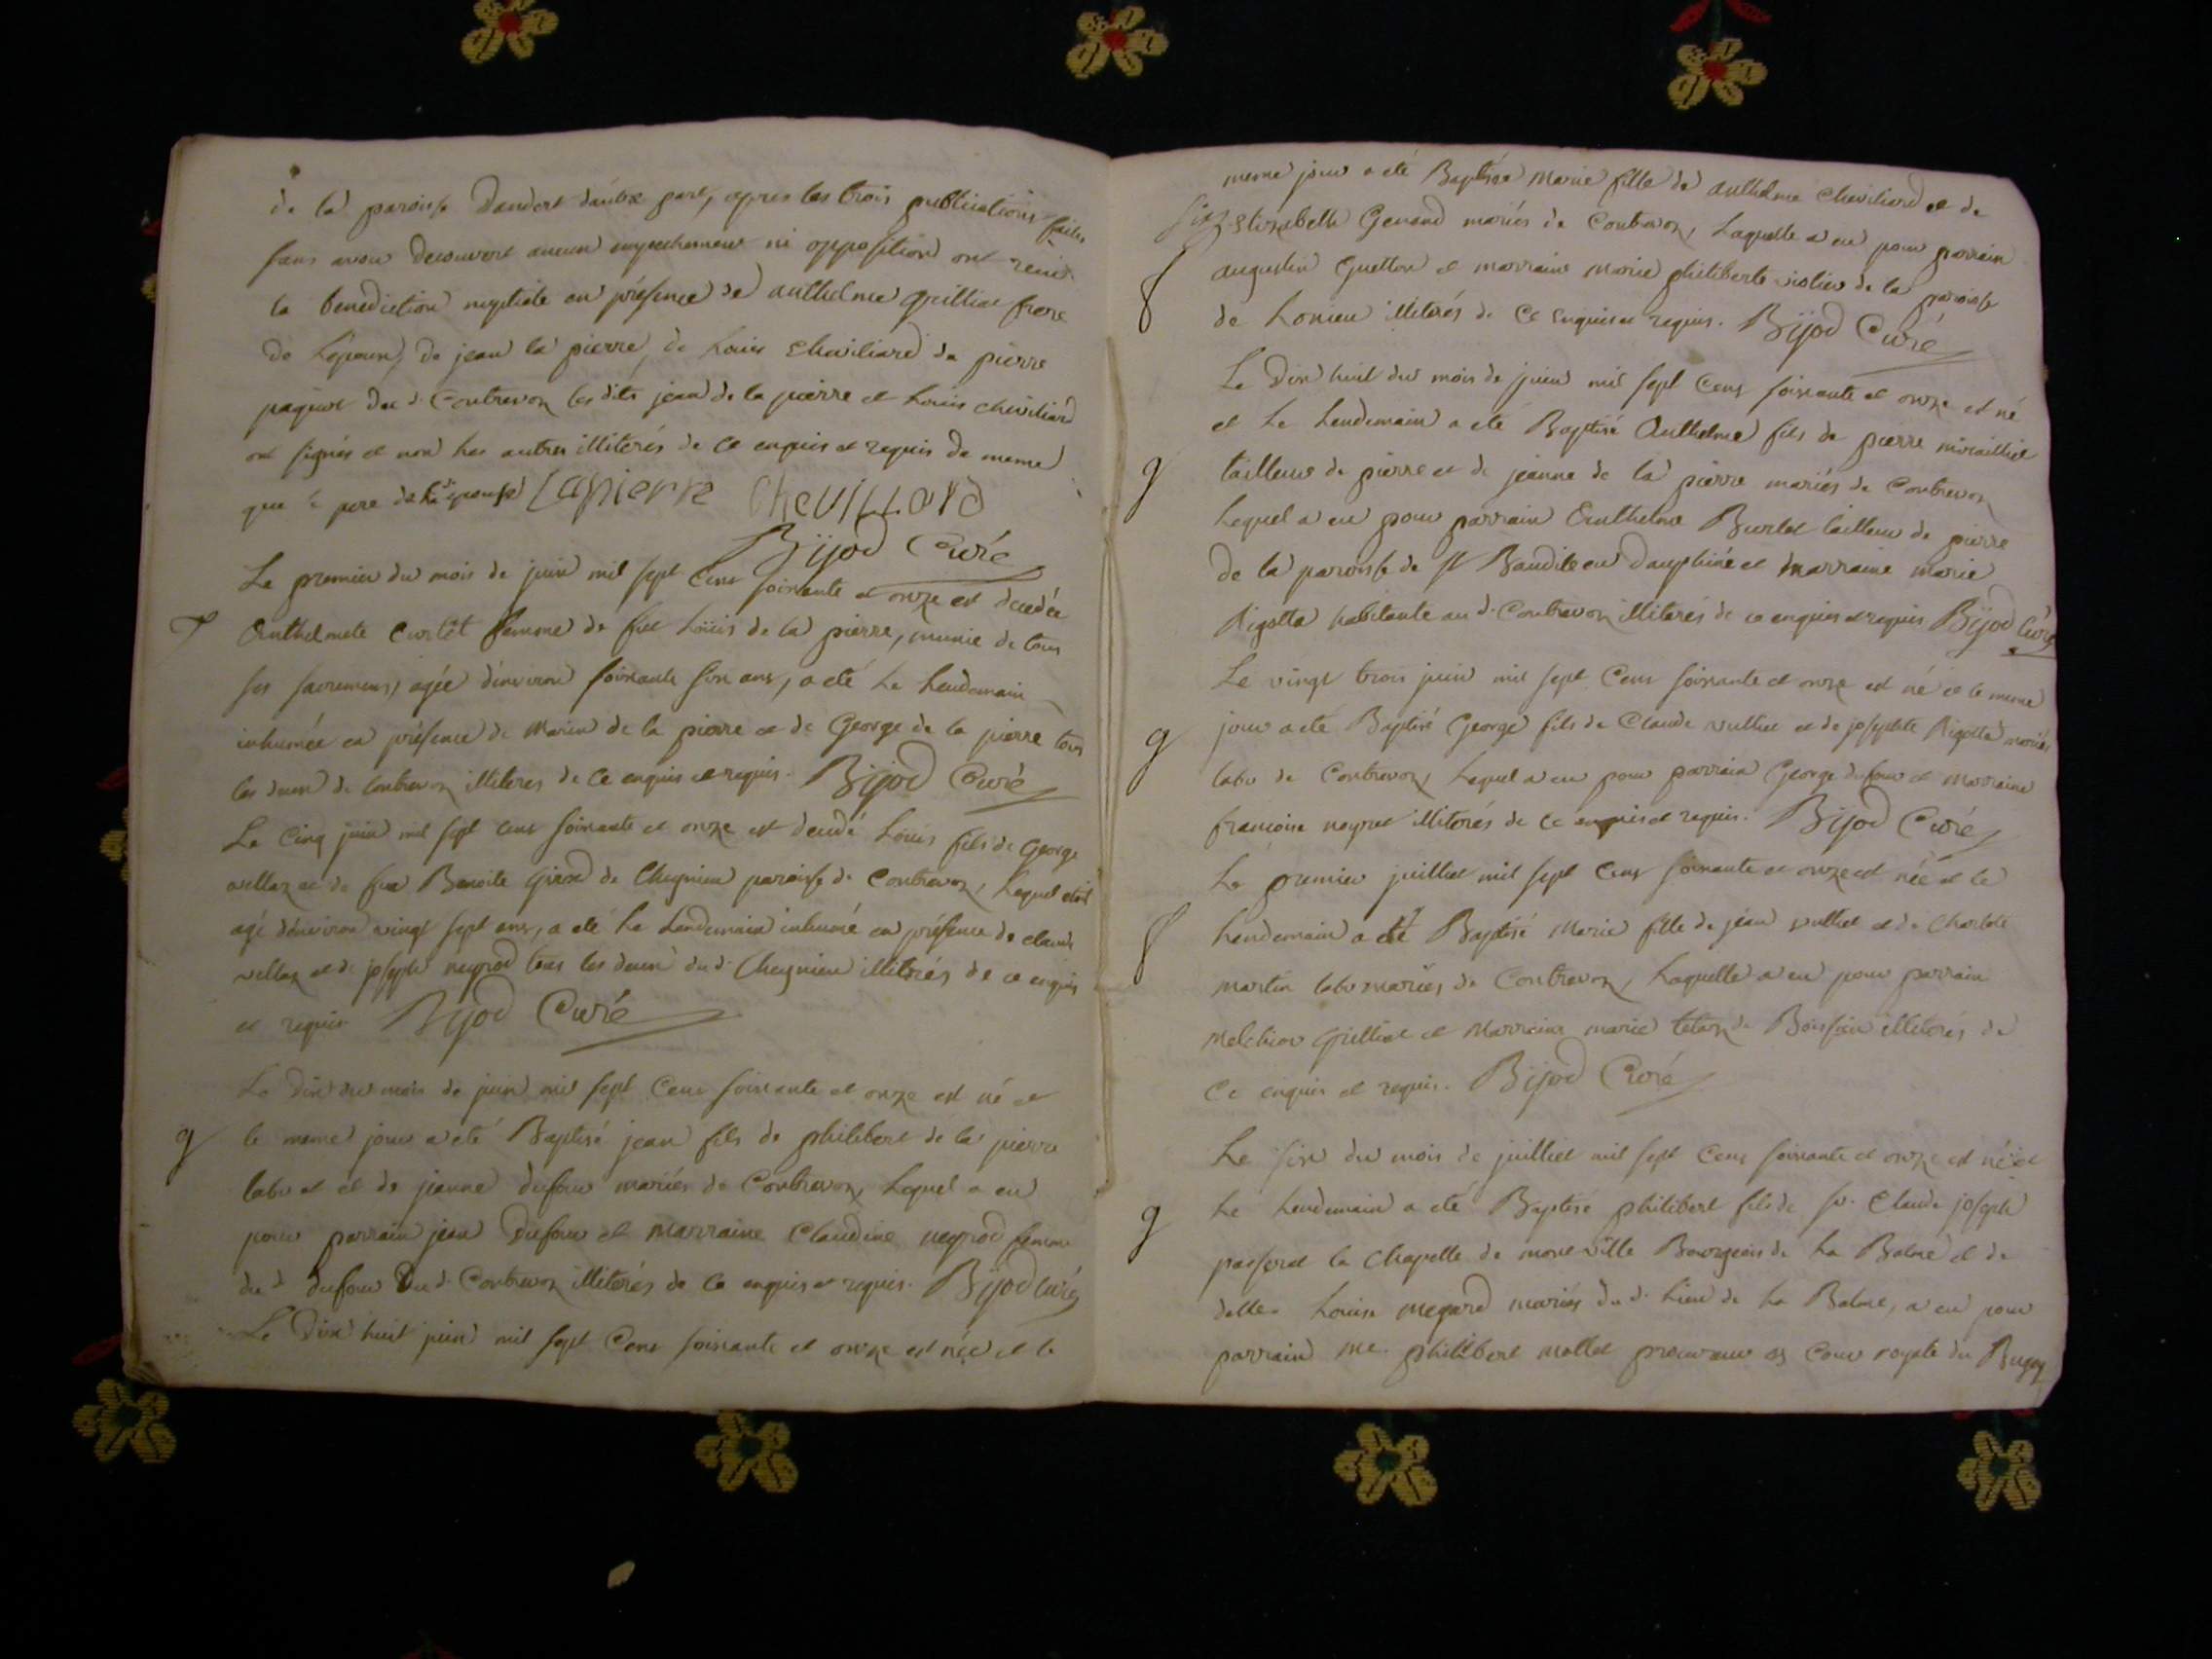 de la paroisse Dandert d'autre part, apres les trois publications faites
sans avoir decouvert aucun empechement ni opposition ont recu
la benediction nuptiale en présence de anthelme grilliet frere
de L'epoux, de jean la pierre, de Louis Cheviliard de pierre
paquet du d. Contrevoz les dits jean de la pierre et Louis cheviliard
ont signés et non les autres illiterés de ce enquis et requis de meme
que le pere de l'epouse Lapierre CheviLLard
Bijod Curé
Le premier du mois de juin mil sept Cens soixante et onze est decedée
Anthelmete Curtet femme de feu Loüis de la pierre, munie de tous
ses sacremens, agée d'environ soixante six ans, a eté le Lendemain
inhumée en présence de Marin de la pierre et de George de la pierre tous
les deux de Contrevoz illiteres de ce enquis et requis. Bijod Curé
Le Cinq juin mil sept Cens soixante et onze est decedé Loüis fils de George
vellaz et de feue Benoite Girod de Cheignieu paroisse de Contrevoz, Lequel etoit
agé d'environ vingt sept ans, a eté le Lendemain inhumé en présence de claude
vellaz et de joseph neyrod tous les deux du d. Cheignieu illiterés de ce enquis
et requis Bijod Curé
Le Dix du mois de juin mil sept Cens soixante et onze est né et
g le meme jour a eté Baptisé jean fils de philibert de la pierre
labr et de jeanne dufour mariés de Contrevoz, Lequel a eu
pour parrain jean Dufour et marraine Claudine neyrod femme
du d. dufour Du d. Contrevoz illiterés de ce enquis et requis. Bijod Curé
Le Dix huit juin mil sept Cens soixante et onze est née et le
meme jour a eté Baptisée Marie fille de anthelme Cheviliard et de
Elizabeth Genand mariés de Contrevoz, Laquelle a eu pour parrain
f augustin Guetton et marraine marie philiberte violier de la paroisse
de Lonieu illiterés de Ce Enquis et requis. Bijod Curé
Le Dix huit du mois de juin mil sept Cens soixante et onze est né
et Le Lendemain a eté Baptisé Anthelme fils de pierre miraillier
g tailleur de pierre et de jeanne de la pierre mariés de Contrevoz
Lequel a eu pour parrain Anthelme Burlet tailleur de pierre
de la paroisse de St Baudile en Dauphiné et marraine marie
Rigotta habitante au d. Contrevoz illiterés de ce enquis et requis Bijod Curé
Le vingt trois juin mil sept Cens soixante et onze est né et le meme
g jour a eté Baptisé George fils de Claude vulliet et de josephte Rigotta mariés
labr de Contrevoz, Lequel a eu pour parrain George dufour et Marraine
francoise neyret illiterés de ce enquis et requis. Bijod Curé
Le premier juilliet mil sept Cens soixante et onze est née et le
f Lendemain a eté Baptisé Marie fille de jean vulliet et de Charlote
martin labr mariés de Contrevoz, Laquelle a eu pour parrain
Melchior grilliet et Marraine marie de Boissieu illiterés de
Ce enquis et requis. Bijod Curé
Le six du mois de juilliet mil sept Cens soixante et onze est né et
g Le Lendemain a eté Baptisé philibert fils de sr. Claude joseph
passerat la Chapelle de moneville Bourgeois de La Balme et de
delle Louise megard mariés du d. Lieu de La Balme, a eu pour
parrain me. philibert mollet procureur es Cour royale du Bugey